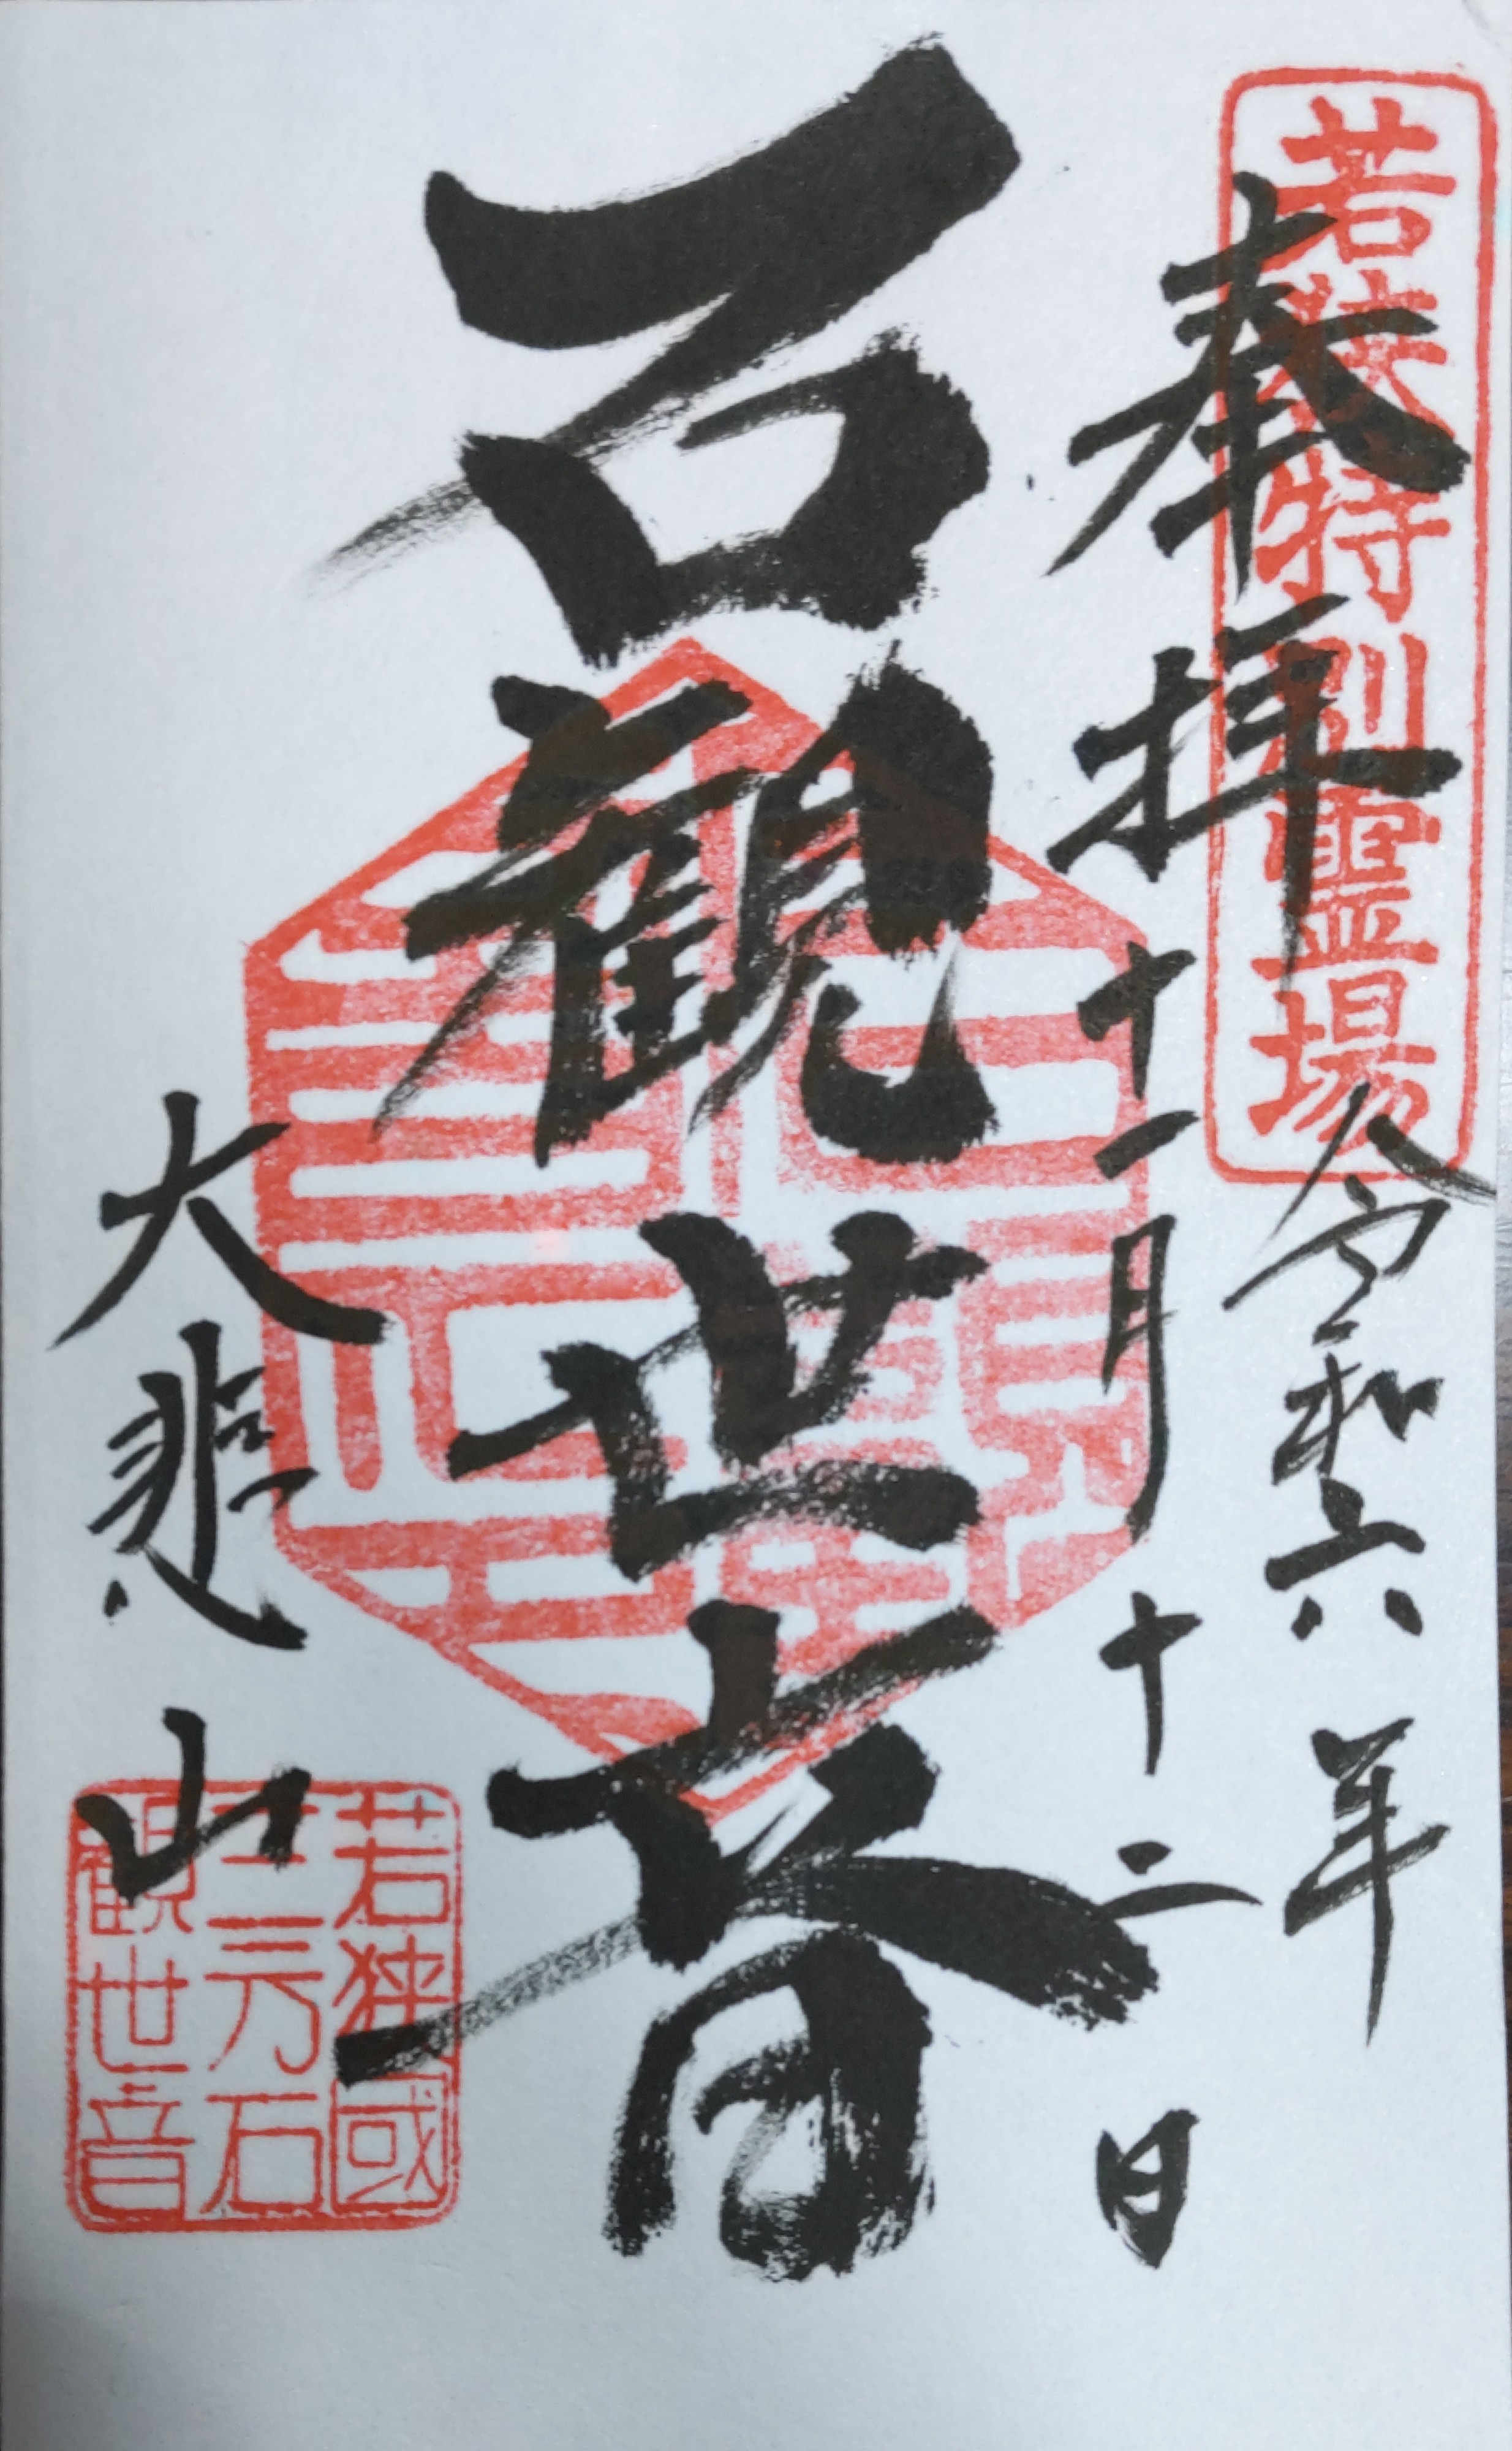 若狭特別霊場
奉拝
令和六年
十一月十二日
石観世音
大悲山
若狭國
三方石
観世音